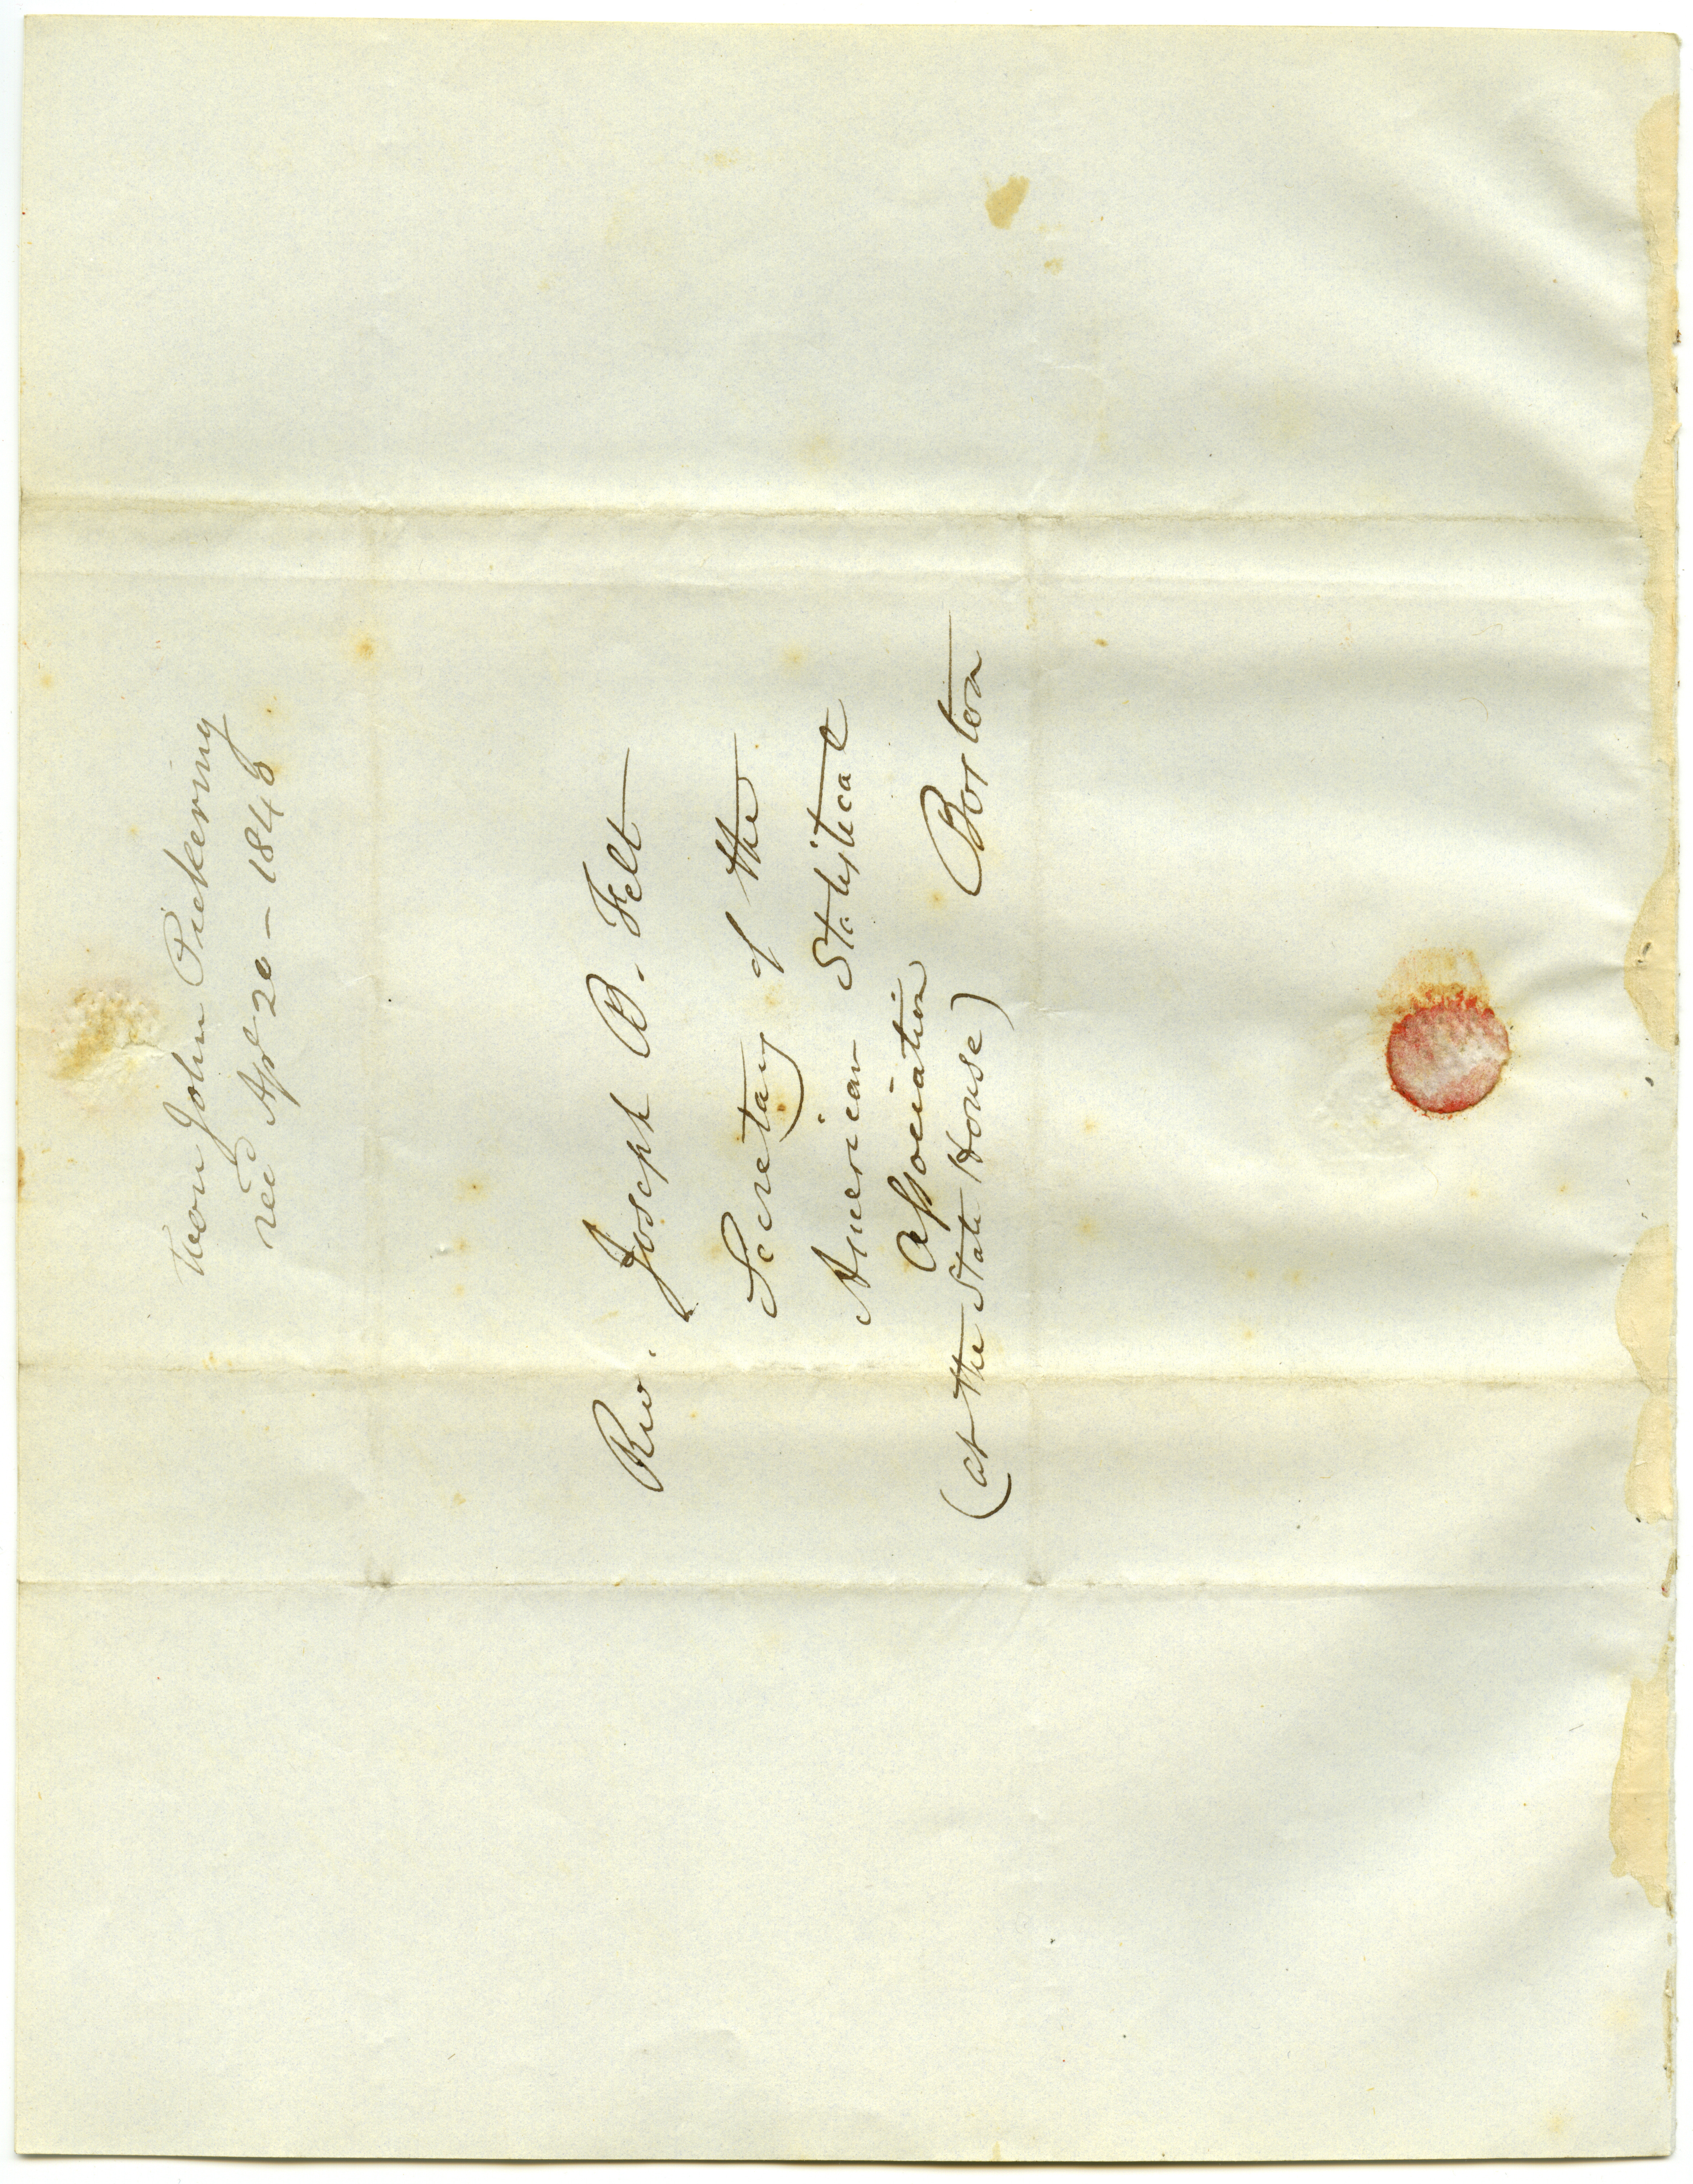 Hon John Pickering
recd Apl 20 – 1840
Rev. Joseph B. Felt
Secretary of the
American Statistical
Association
(at the State House) Boston